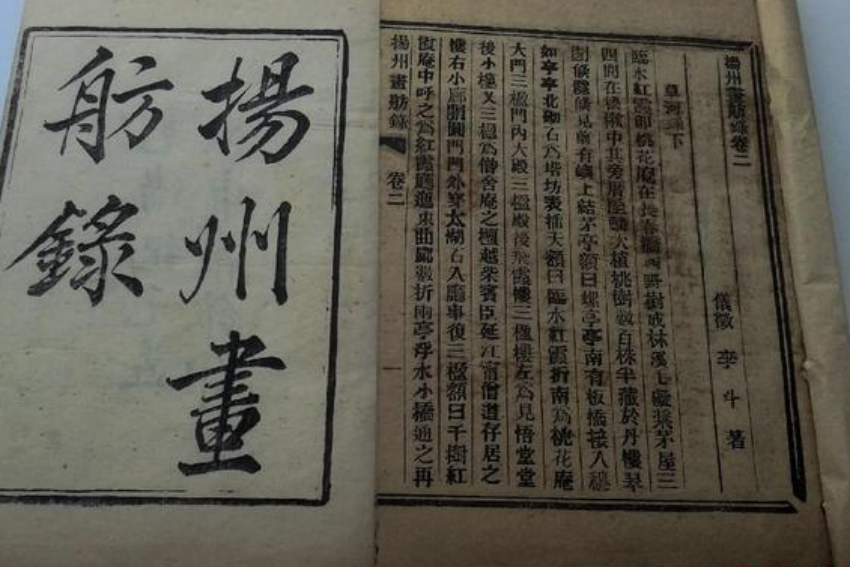 揚州畫
舫錄
揚州畫舫錄卷二
儀徵 李斗著
草河錄下
臨水紅霞即桃花庵在長春橋西野樹成林溪毛礙槳茅屋三
四間在松楸中其旁厝屋鱗次植桃樹數百株半藏於丹樓翠
閣倏隱倏見前有嶼上結茅亭額曰螺亭亭南有板橋接入穆
如亭亭北砌石為堦坊表插天額曰臨水紅霞折南為桃花庵
大門三楹門內大殿三楹殿後飛霞樓三楹樓左為見悟堂堂
後小樓又三楹為僧舍庵之檀越柴賓臣延江甯僧道存居之
樓右小廊開圓門門外穿太湖石入廳事復三楹額曰千樹紅
霞庵中呼之為紅霞廳迤東曲廊數折兩亭浮水小橋通之再
揚州畫舫錄 卷二 一